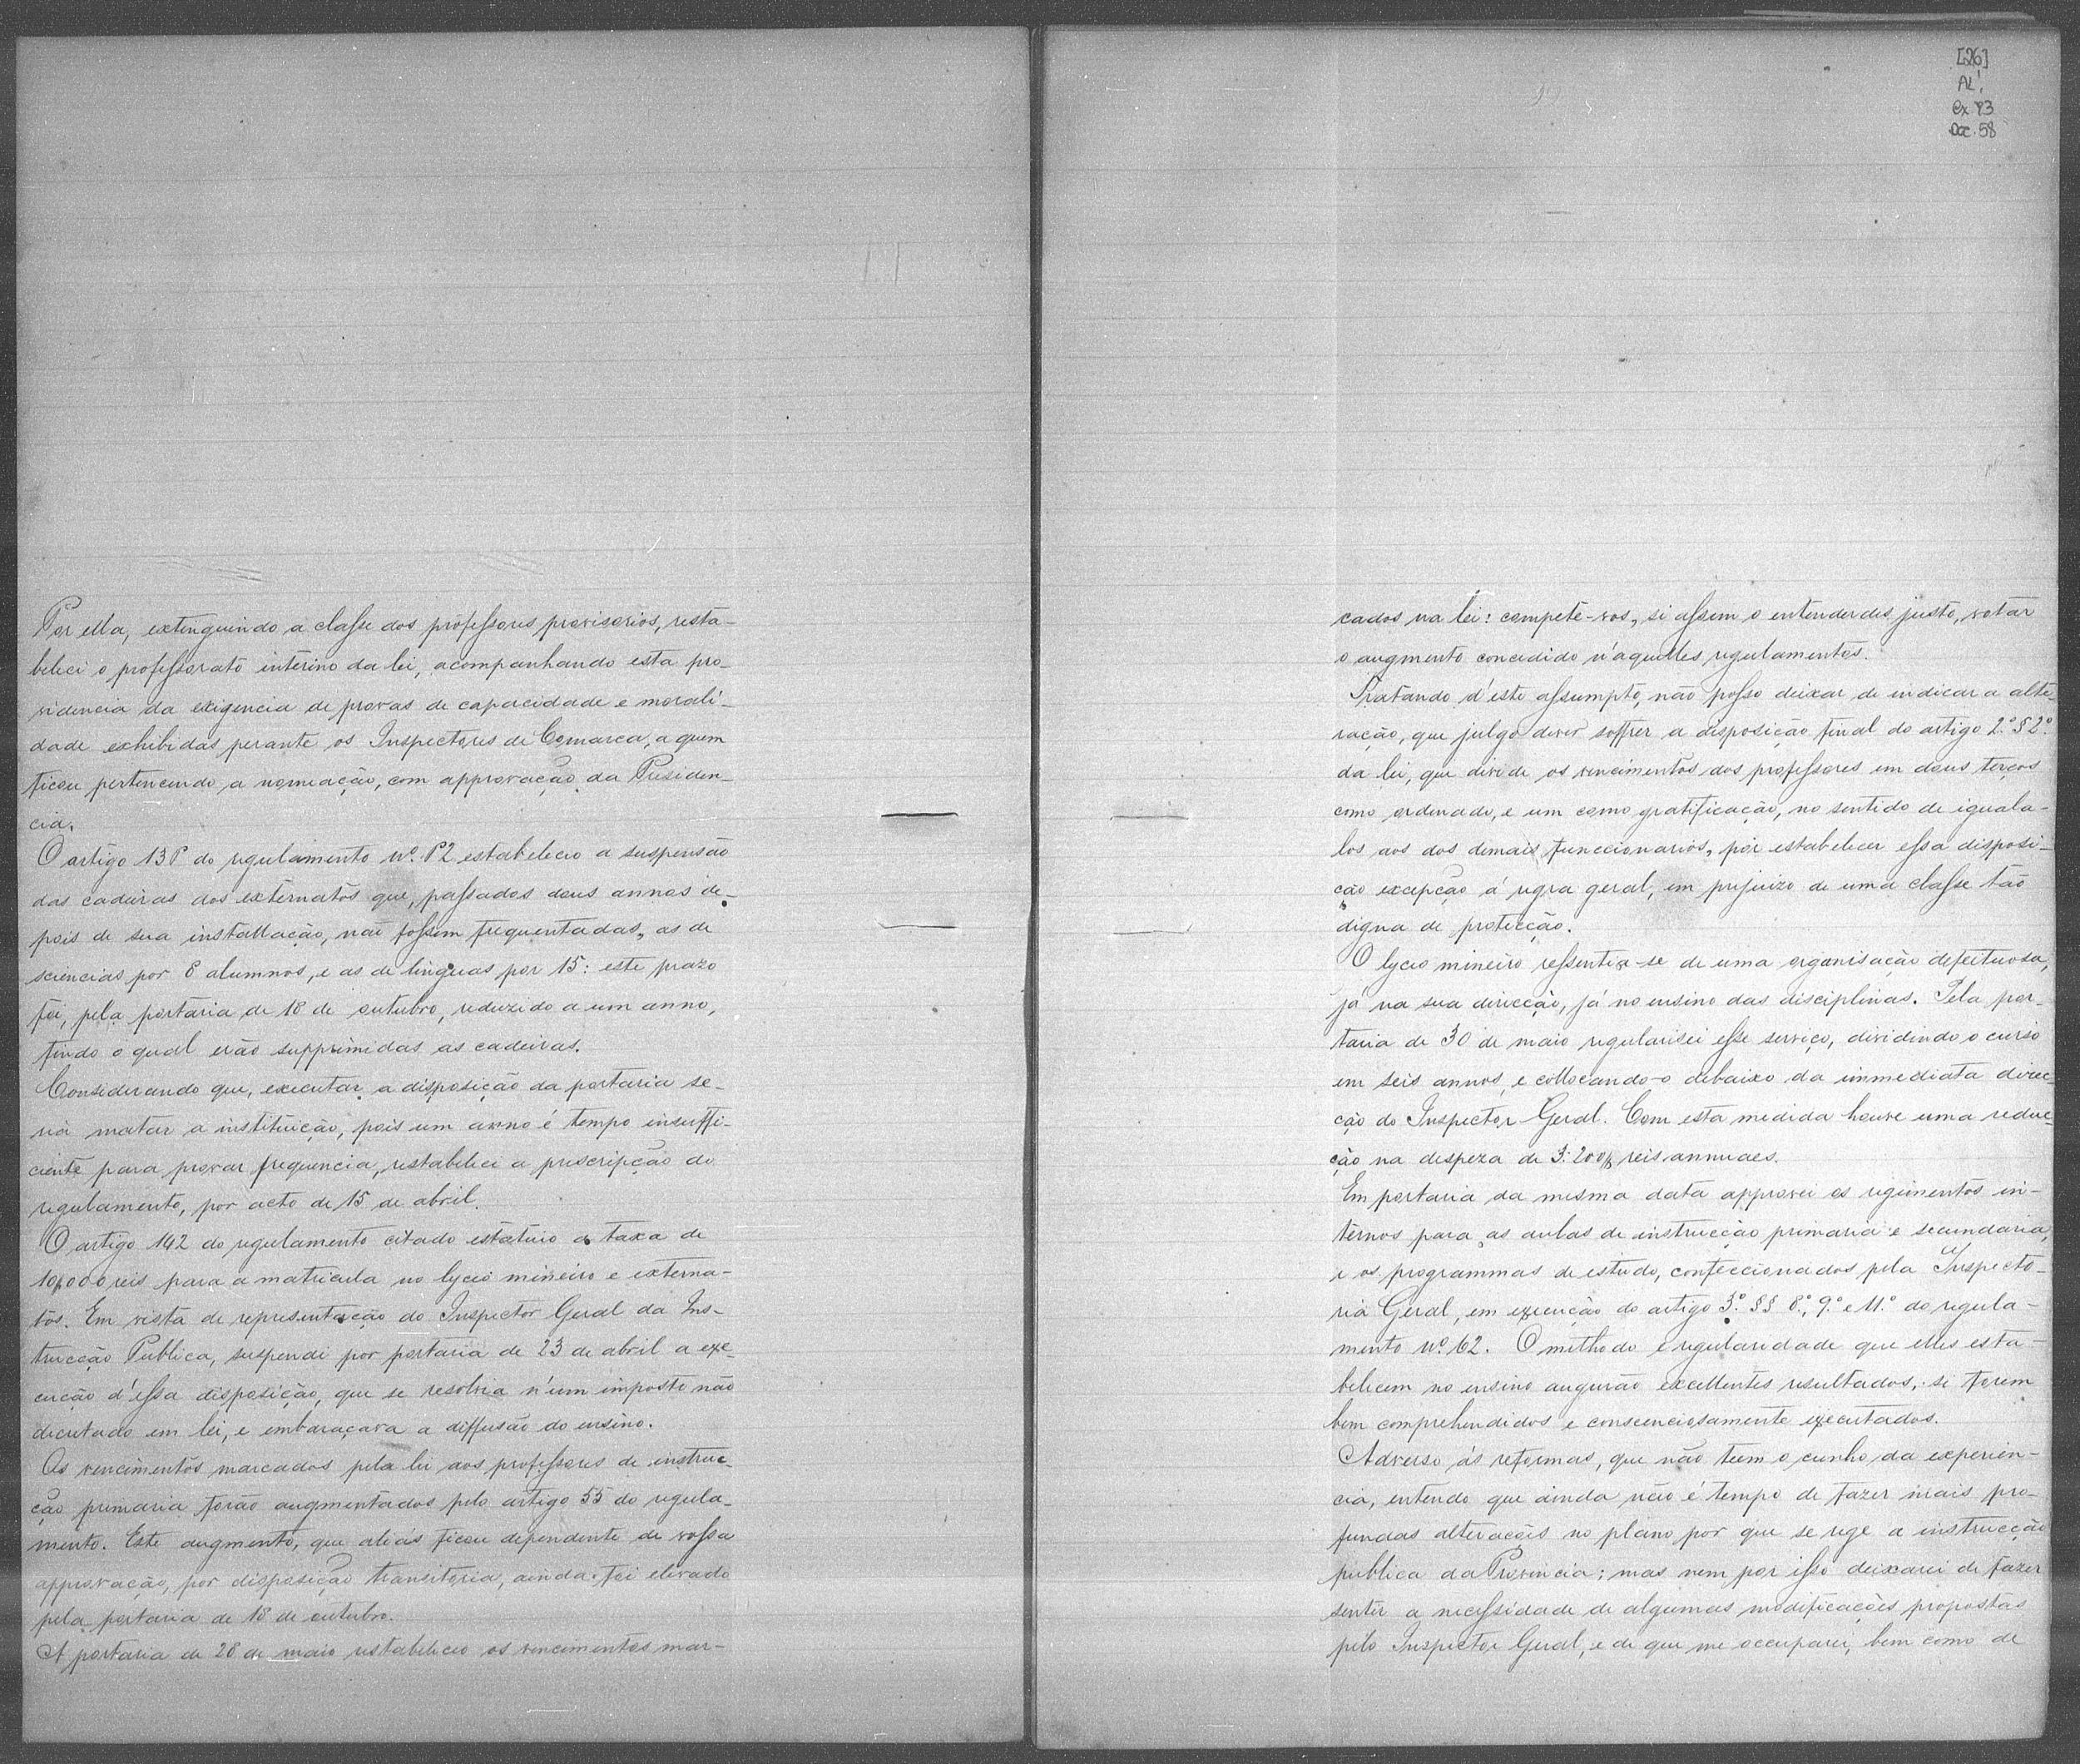 Por ella, extinguindo a classe dos professores provisorios, resta-
beleci o professorato interino da lei, acompanhando esta pro-
videncia da exigencia de provas de capacidade e morali-
dade exhibidas perante os Inspectores de Comarca, a quem
ficou pertencendo a nomeação, com approvação da Presiden-
cia.
O artigo 138 do regulamento nº. 62 estabeleceo a suspensão
das cadeiras dos externatos que, passados dous annos de-
pois de sua installação, não fossem frequentadas, as de
sciencias por 8 alumnos, e as de linguas por 15: este prazo
foi, pela portaria de 18 de outubro, reduzido a um anno,
findo o qual erão supprimidas as cadeiras.
Considerando que, executar a disposição da portaria se-
ria matar a instituição, pois um anno é tempo insuffi-
ciente para provar frequencia, restabeleci a prescripção do
regulamento, por acto de 15 de abril.
O artigo 142 do regulamento citado estatuio a taxa de
10$000 reis para a matricula no lyceo mineiro e externa-
tos. Em vista de representação do Inspector Geral da Ins-
trucção Publica, suspendi por portaria de 23 de abril a exe-
cução d'essa disposição, que se resolvia n'um imposto não
decretado em lei, e embaraçava a diffusão do ensino.
Os vencimentos marcados pela lei aos professores de instruc-
ção primaria forão augmentados pelo artigo 55 do regula-
mento. Este augmento, que aliás ficou dependente de vossa
approvação, por disposição transitoria, ainda foi elevado
pela portaria de 18 de outubro.
A portaria de 28 de maio restabeleceo os vencimentos mar-
[26]
AL!
Cx 73
Doc. 58
cados na lei: compete-vos, si assim o entenderdes justo, votar
o augmento concedido n'aquelles regulamentos.
Tratando d'este assumpto, não posso deixar de indicar a alte-
ração, que julgo dever soffrer a disposição final do artigo 2.º § 2º.
da lei, que divide os vencimentos dos professores em dous terços
como ordenado, e um como gratificação, no sentido de iguala-
los aos dos demais funccionarios, por estabelecer essa disposi-
ção excepção á regra geral, em prejuizo de uma classe tão
digna de protecção.
O lyceo mineiro ressentia-se de uma organisação defeituosa,
já na sua direcção, já no ensino das disciplinas. Pela por-
taria de 30 de maio regularisei esse serviço, dividindo o curso
em seis annos, e collocando-o debaixo da immediata direc-
ção do Inspector Geral. Com esta medida houve uma reduc-
ção na despeza de 3:200$ reis annuaes.
Em portaria da mesma data approvei os regimentos in-
ternos para as aulas de instrucção primaria e secundaria,
e os programmas de estudo, confeccionados pela Inspecto-
ria Geral, em execução do artigo 3º. §§ 8.º, 9.º e 11.º do regula-
mento nº. 62. O methodo e regularidade que elles esta-
belecem no ensino augurão excellentes resultados, si forem
bem comprehendidos e conscenciosamente executados.
Adverso ás reformas, que não teem o cunho da experien-
cia, entendo que ainda não é tempo de fazer mais pro-
fundas alterações no plano por que se rege a instrucção
publica da Provincia; mas nem por isso deixarei de fazer
sentir a necessidade de algumas modificações propostas
pelo Inspector Geral, e de que me occuparei, bem como de